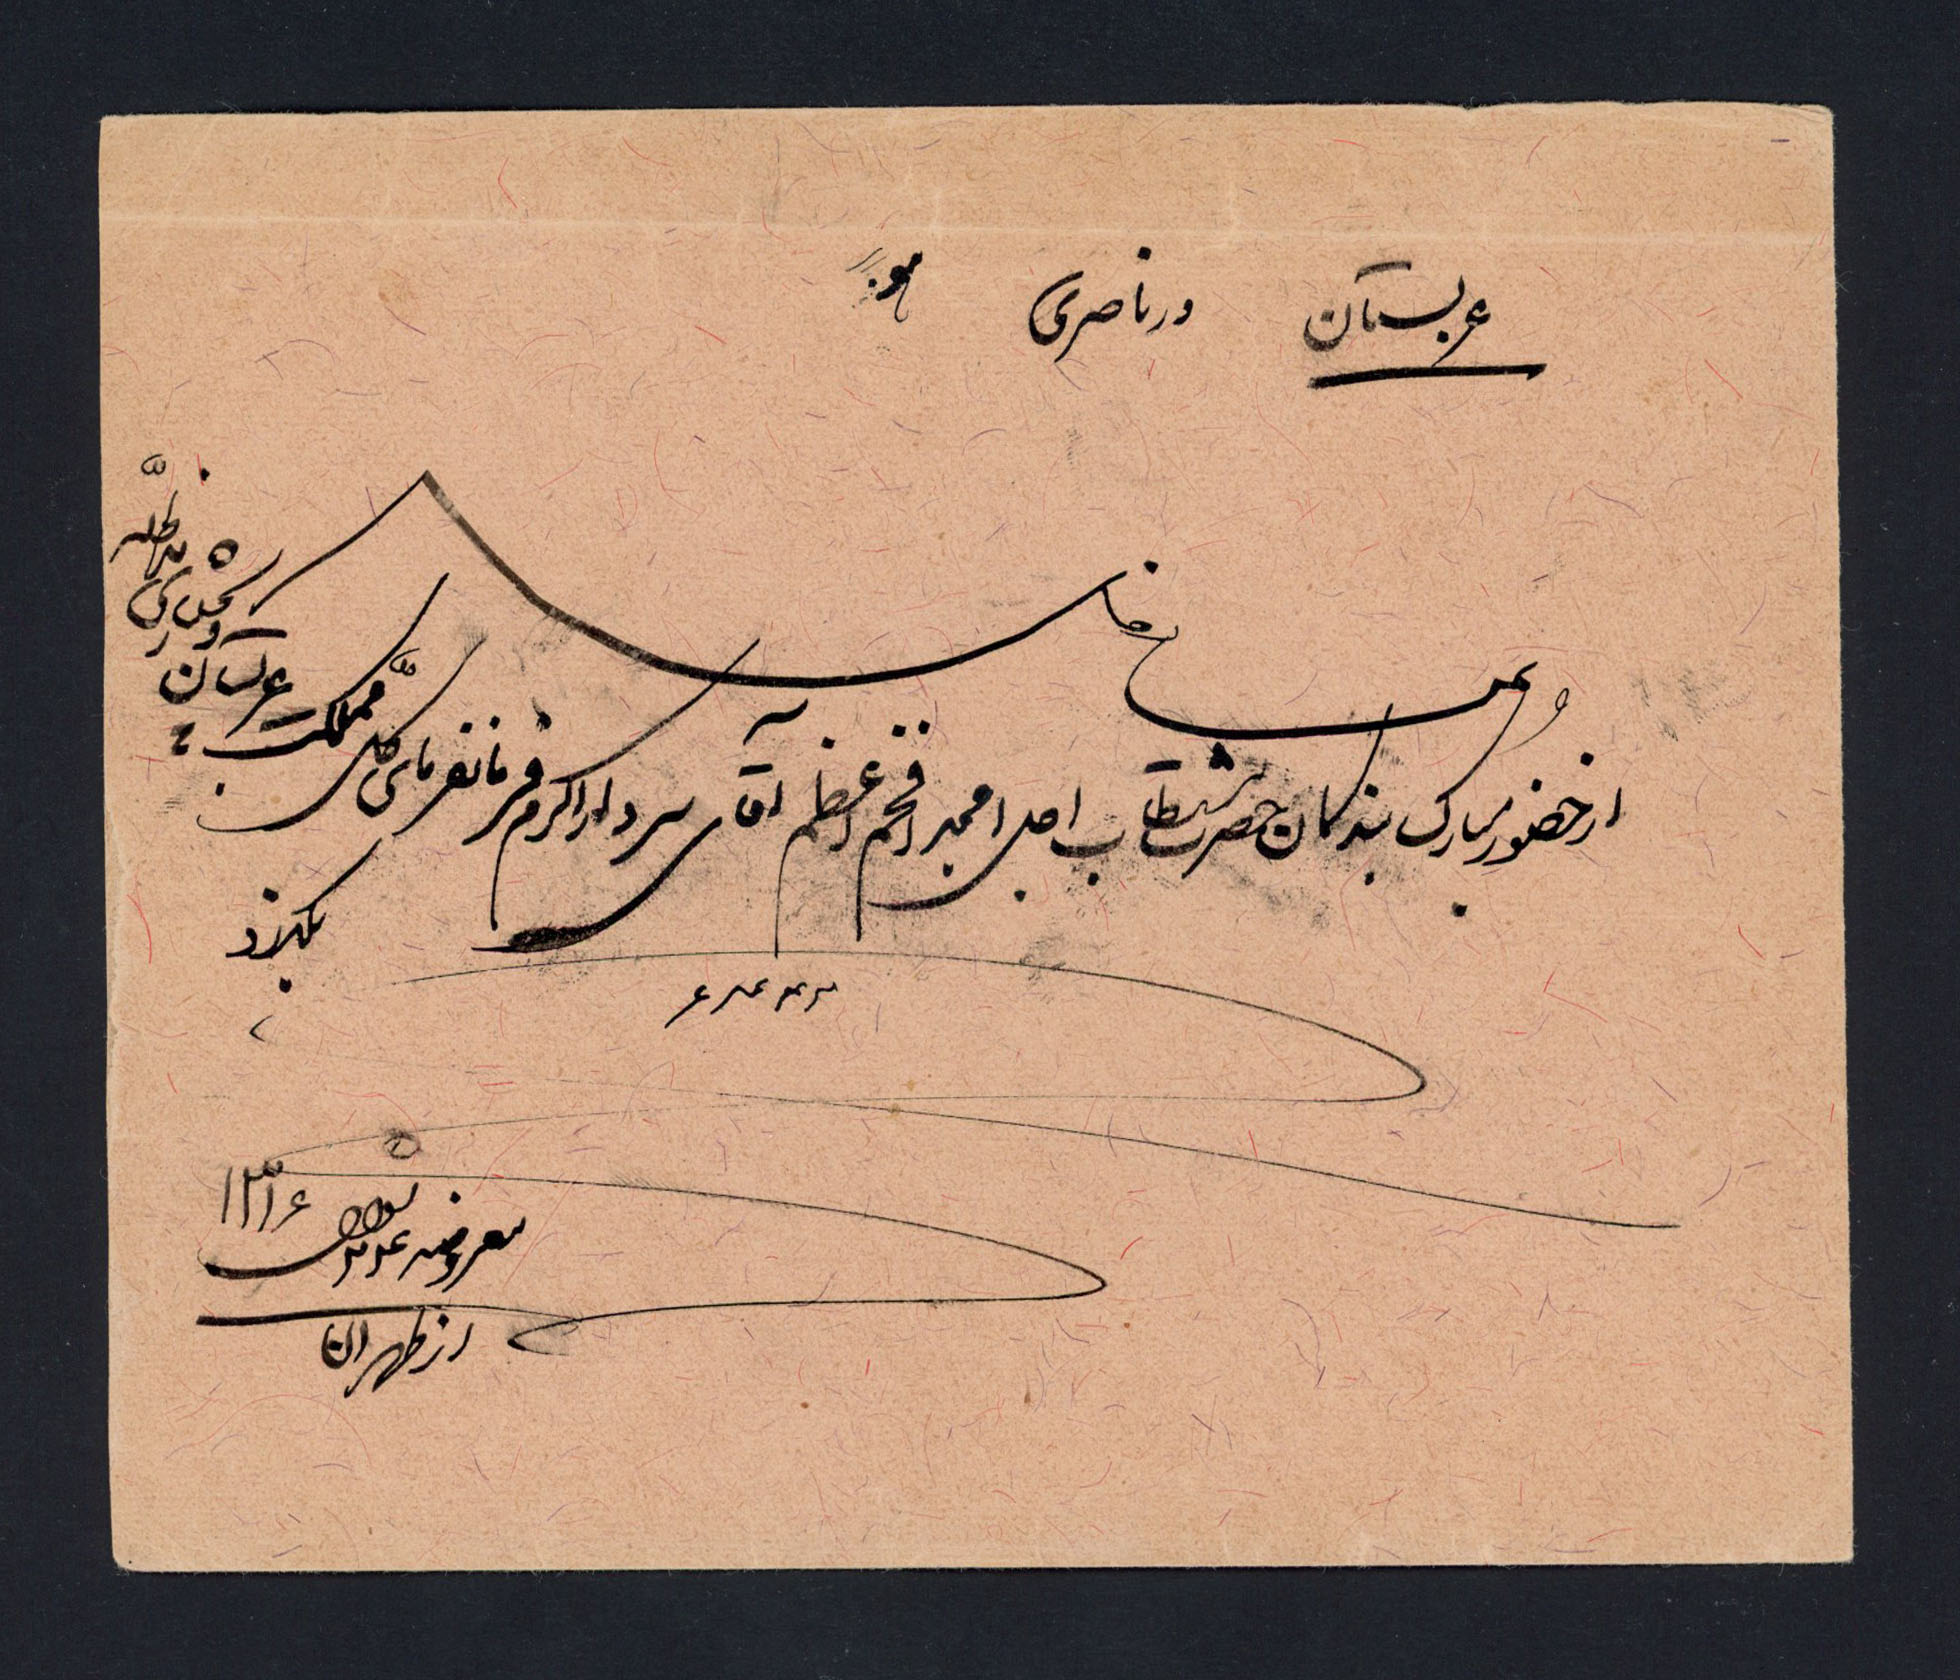 عربستان در ناصری هو
از حضور مبارک بندگان حضرت مستطاب اجل امجد افخم اعظم آقای سردار اکرم فرمانفرمای کل مملکت عربستان و بختیاری مد ظله
بگذرد
معروضه
۱۳۱۶
از طهران